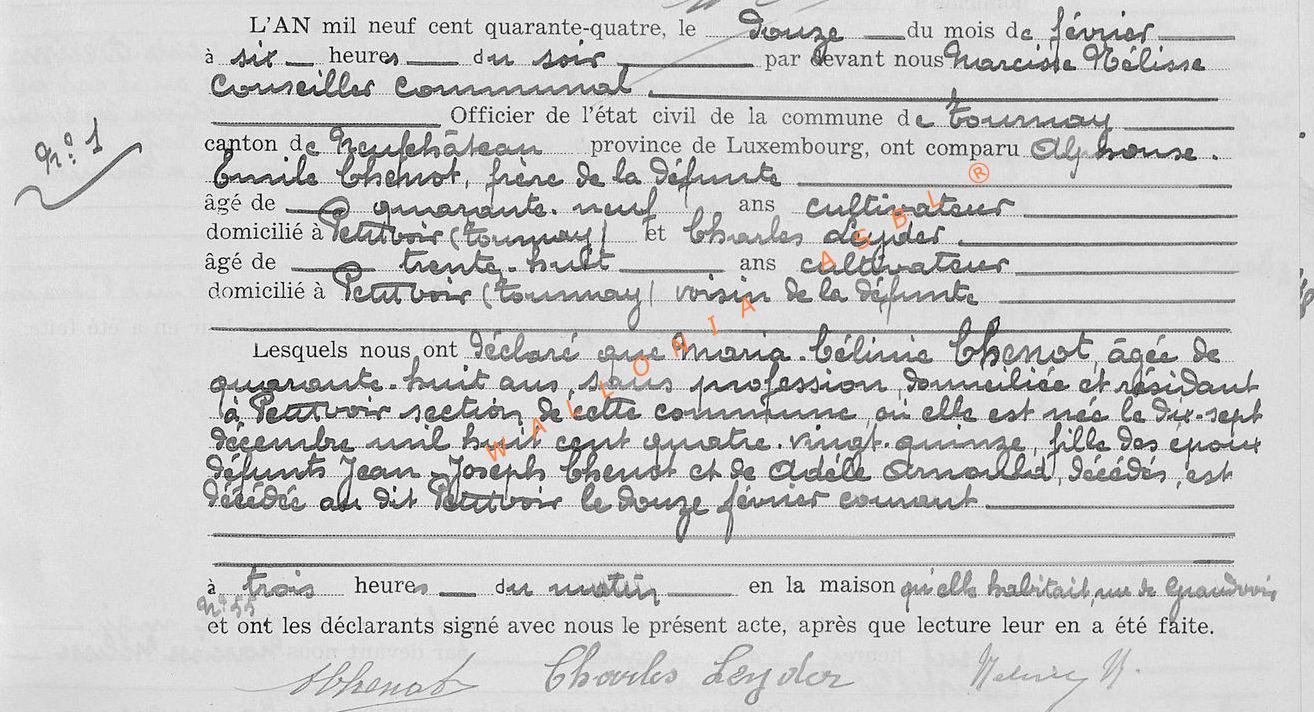 L'AN mil neuf cent quarante-quatre, le douze du mois de février
à six heures du soir par devant nous Narcisse Nélisse
Conseiller Communal.
Officier de l'état civil de la commune de Tournay
N° 1
canton de Neufchâteau province de Luxembourg, ont comparu Alphonse.
Emile Chenot, frère de la défunte
âgé de quarante-neuf ans cultivateur
domicilié à Petitvoir (Tournay) et Charles Leyder
âgé de trente-huit ans cultivateur
domicilié à Petitvoir (Tournay) voisin de la défunte
Lesquels nous ont déclaré que Maria-Célinie Chenot, âgée de
quarante-huit ans, sans profession domiciliée et résidant
à Petitvoir section de cette commune, où elle est née le dix-sept
décembre mil huit cent quatre-vingt-quinze, fille des époux
défunts Jean-Joseph Chenot et de Adèle Arnould, décédés, est
décédée au dit Petitvoir le douze février courant
à trois heures du matin en la maison qu'elle habitait, rue de Grandvoir
N° 55
et ont les déclarants signé avec nous le présent acte, après que lecture leur en a été faite.
AChenot Charles Leyder
WALLONIA ASBL ®